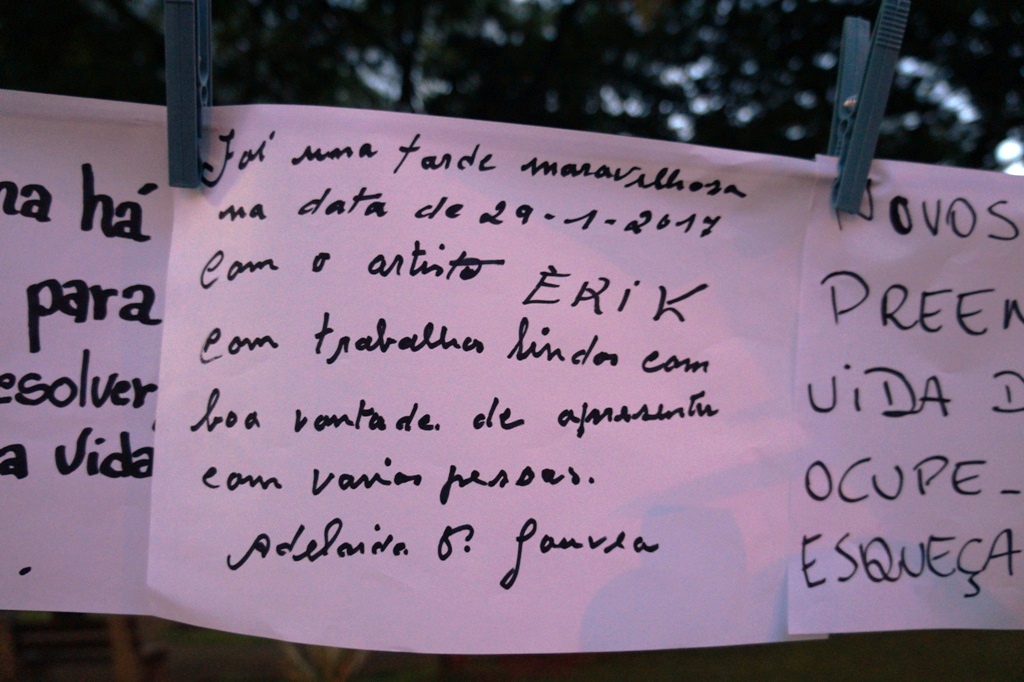 na há
para
esolver
a vida
.
Foi uma tarde maravilhosa
na data de 29-1-2017
com o artista ERiK
com trabalhos lindos com
boa vontade. de apresentar
com varias pessoas.
Adelaida O. Gouvea
NOVOS
PREEN
ViDA D
OCUPE-
ESQUEÇA